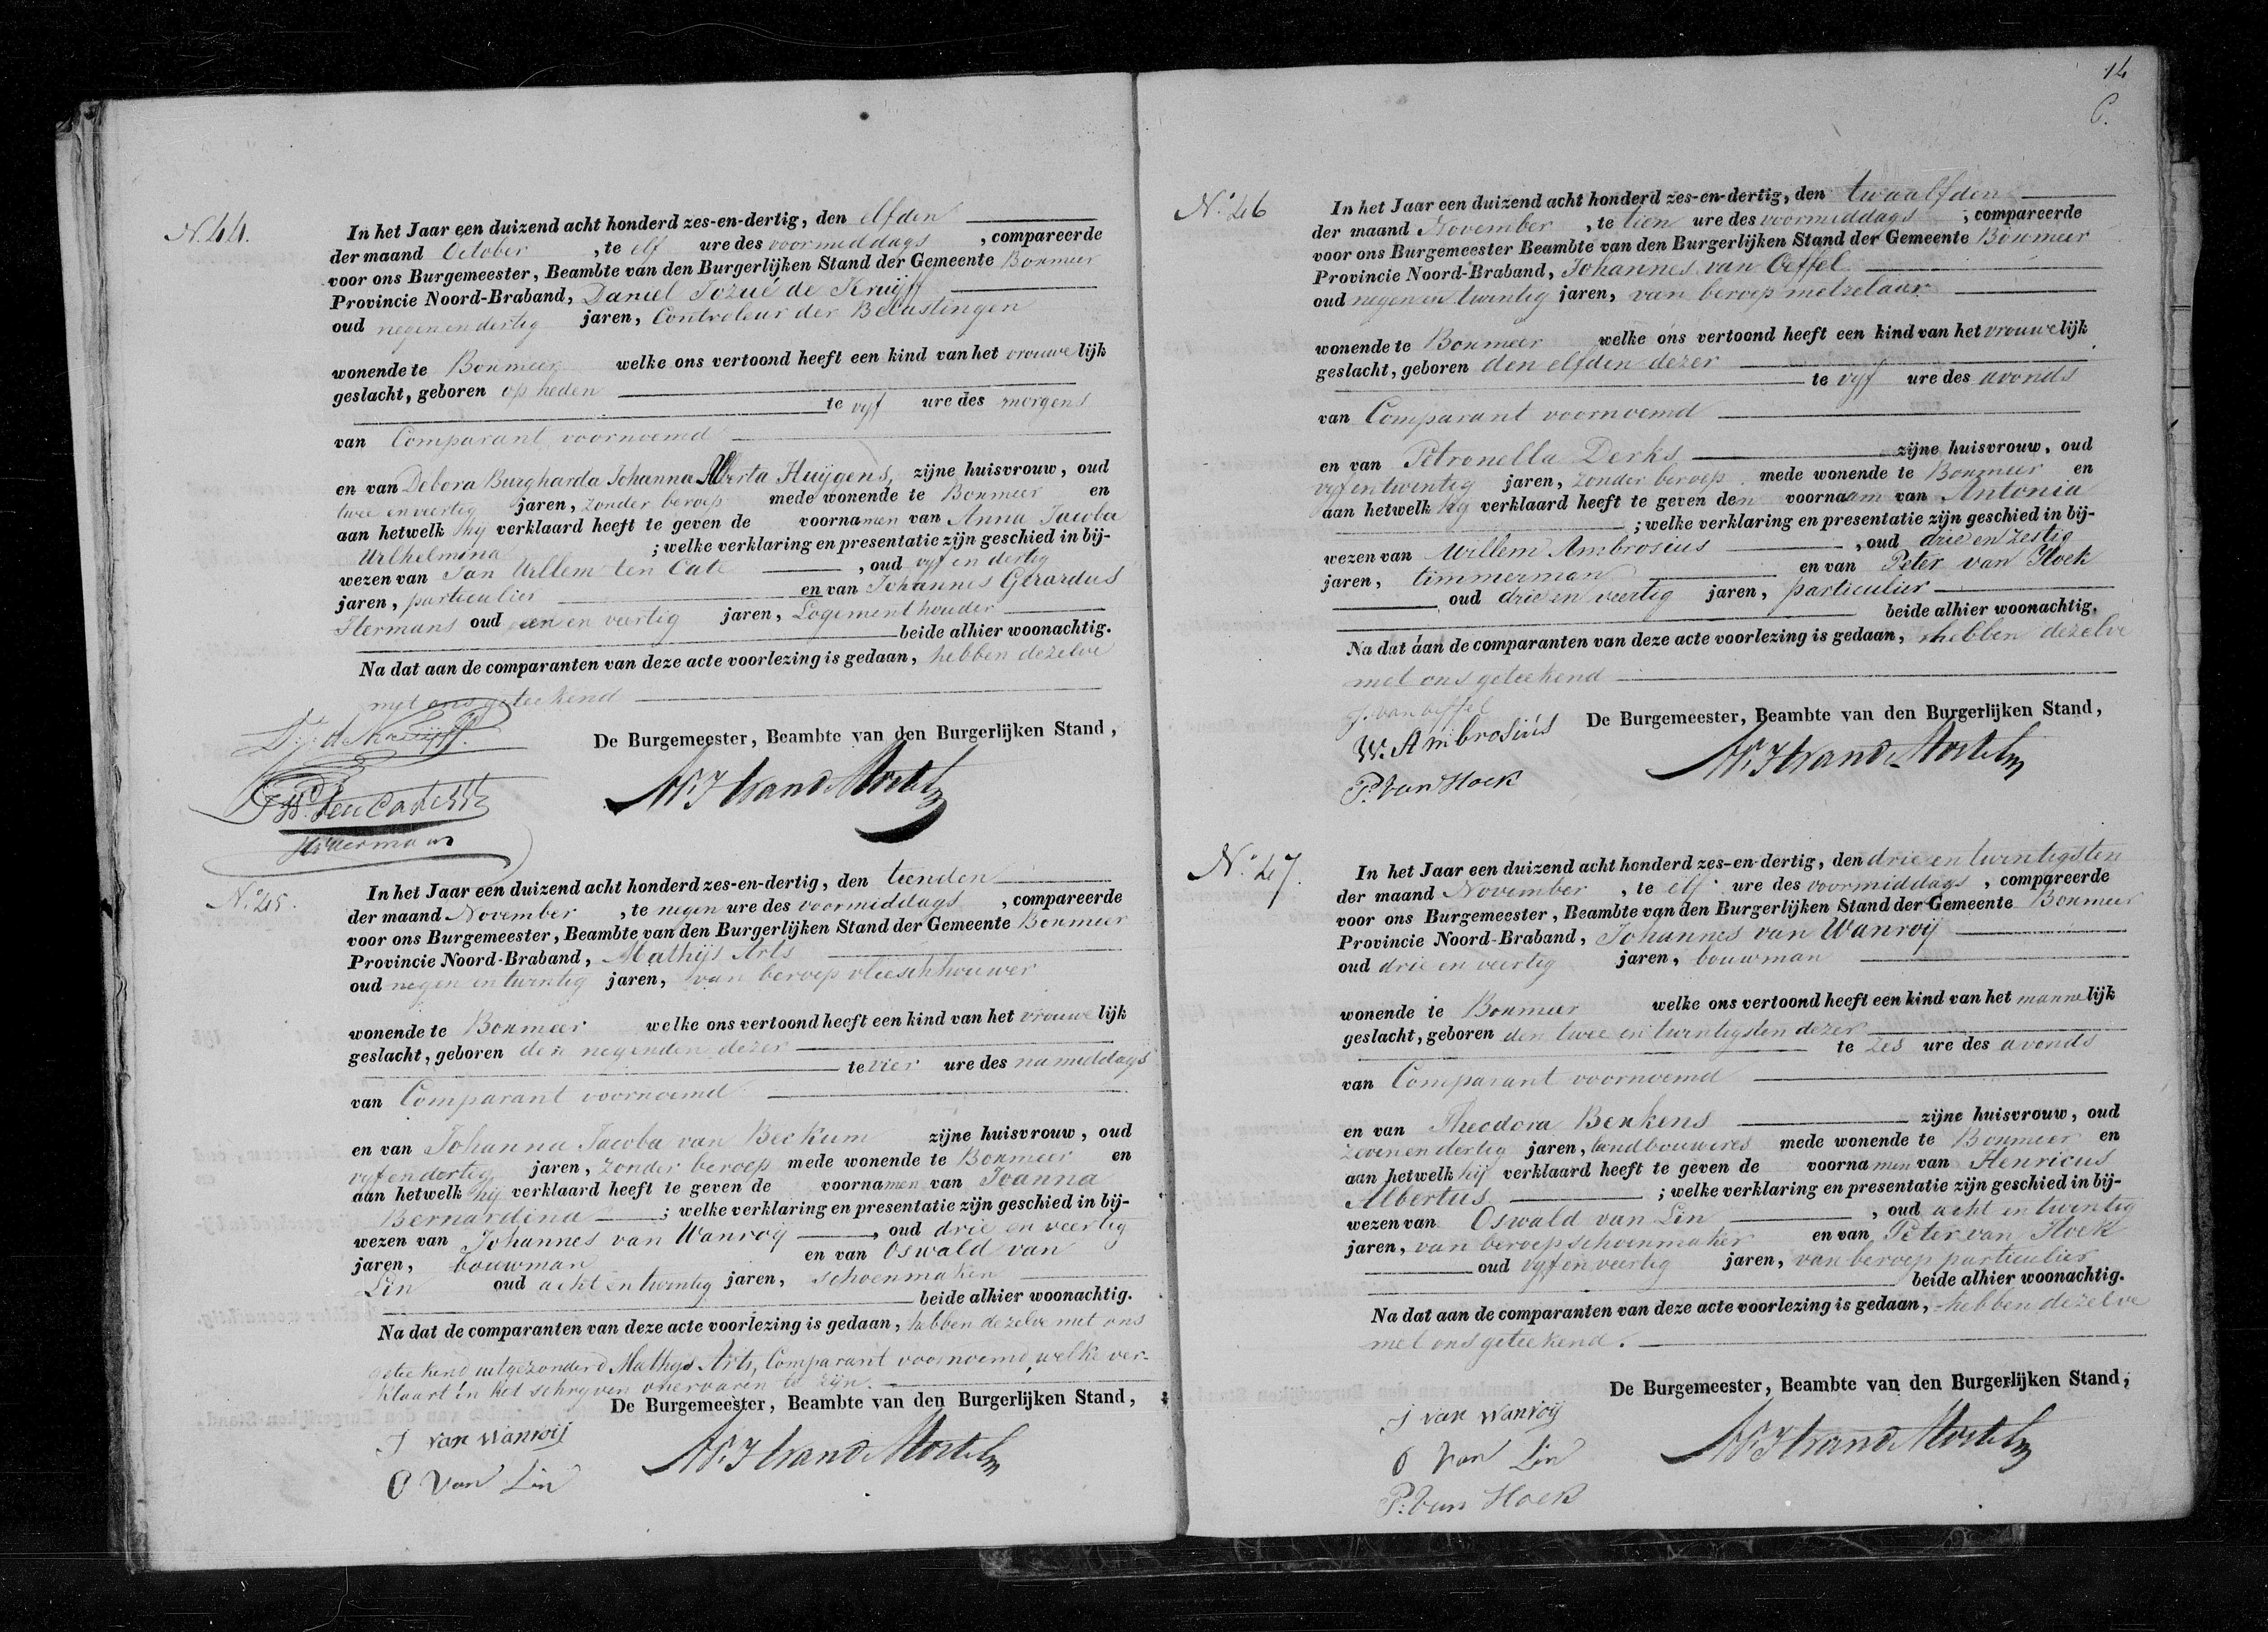 N. 44.
In het Jaar een duizend acht honderd zes-en-dertig, den elfden
der maand October , te elf ure des voormiddags , compareerde
voor ons Burgemeester, Beambte van den Burgerlijken Stand der Gemeente Boxmeer
Provincie Noord-Braband, Daniel Jozué de Kruijff
oud negen en dertig jaren, Controleur der Belastingen
wonende te Boxmeer welke ons vertoond heeft een kind van het vrouwelijk
geslacht, geboren op heden
te vyf ure des morgens
van Comparant voornoemd
en van Debora Burgharda Johanna Alberta Huijgens, zijne huisvrouw, oud
twee en veertig jaren, zonder beroep mede wonende te Boxmeer en
aan hetwelk hij verklaard heeft te geven de voornamen van Anna Jacoba
Wilhelmina ; welke verklaring en presentatie zijn geschied in bij-
wezen van Jan Willem ten Cate , oud vyf en dertig
jaren, particulier en van Johannes Gerardus
Hermans oud een en veertig jaren, Logementhouder
beide alhier woonachtig.
Na dat aan de comparanten van deze acte voorlezing is gedaan, hebben dezelve
met ons geteekend
De Burgemeester, Beambte van den Burgerlijken Stand,
D. J. de Kruijff.
J W ten Cate
Hermans
No. 45.
In het Jaar een duizend acht honderd zes-en-dertig, den tienden
der maand November , te negen ure des voormiddags , compareerde
voor ons Burgemeester, Beambte van den Burgerlijken Stand der Gemeente Boxmeer
Provincie Noord-Braband, Mathijs Arts
oud negen en twintig jaren, van beroep vlieschhouwer
wonende te Boxmeer welke ons vertoond heeft een kind van het vrouwelijk
geslacht, geboren den negenden dezer
te vier ure des namiddags
van Comparant voornoemd
en van Johanna Jacoba van Beckum zijne huisvrouw, oud
vyf en dertig jaren, zonder beroep mede wonende te Boxmeer en
aan hetwelk hij verklaard heeft te geven de voornamen van Joanna
Bernardina ; welke verklaring en presentatie zijn geschied in bij-
wezen van Johannes van Wanroij , oud drie en veertig
jaren, bouwman en van Oswald van
Lin oud acht en twintig jaren, schoenmaker
beide alhier woonachtig.
Na dat de comparanten van deze acte voorlezing is gedaan, hebben dezelve met ons
geteekend uitgezonderd Mathijs Arts, Comparant voornoemd, welke ver-
klaart in het schryven onervaren te zijn.
De Burgemeester, Beambte van den Burgerlijken Stand,
J van Wanroij
O van Lin
14
C.
No. 46
In het Jaar een duizend acht honderd zes-en-dertig, den twaalfden
der maand November , te tien ure des voormiddags , compareerde
voor ons Burgemeester Beambte van den Burgerlijken Stand der Gemeente Boxmeer
Provincie Noord-Braband, Johannes van Oeffel
oud negen en twintig jaren, van beroep metzelaar
wonende te Boxmeer welke ons vertoond heeft een kind van het vrouwelijk
geslacht, geboren den elfden dezer
te vyf ure des avonds
van Comparant voornoemd
en van Petronella Derks zijne huisvrouw, oud
vyf en twintig jaren, zonder beroep mede wonende te Boxmeer en
aan hetwelk hij verklaard heeft te geven den voornaam van Antonia
; welke verklaring en presentatie zijn geschied in bij-
wezen van Willem Ambrosius , oud drie en zestig
jaren, timmerman en van Peter van Hoek
oud drie en veertig jaren, particulier
beide alhier woonachtig.
Na dat aan de comparanten van deze acte voorlezing is gedaan, hebben dezelve
met ons geteekend
J. van Oeffel
De Burgemeester, Beambte van den Burgerlijken Stand,
W. Ambrosius
P. van Hoek
No. 47.
In het Jaar een duizend acht honderd zes-en-dertig, den drie en twintigsten
der maand November , te elf ure des voormiddags , compareerde
voor ons Burgemeester, Beambte van den Burgerlijken Stand der Gemeente Boxmeer
Provincie Noord-Braband, Johannes van Wanroij
oud drie en veertig jaren, bouwman
wonende te Boxmeer welke ons vertoond heeft een kind van het mannelijk
geslacht, geboren den twee en twintigsten dezer
te zes ure des avonds
van Comparant voornoemd
en van Theodora Benkens zijne huisvrouw, oud
zeven en dertig jaren, landbouweres mede wonende te Boxmeer en
aan hetwelk hij verklaard heeft te geven de voornamen van Henricus
Albertus ; welke verklaring en presentatie zijn geschied in bij-
wezen van Oswald van Lin , oud acht en twintig
jaren, van beroep schoenmaker en van Peter van Hoek
oud vyf en veertig jaren, van beroep particulier
beide alhier woonachtig.
Na dat aan de comparanten van deze acte voorlezing is gedaan, hebben dezelve
met ons geteekend.
De Burgemeester, Beambte van den Burgerlijken Stand,
J van Wanroij
O van Lin
P. van Hoek